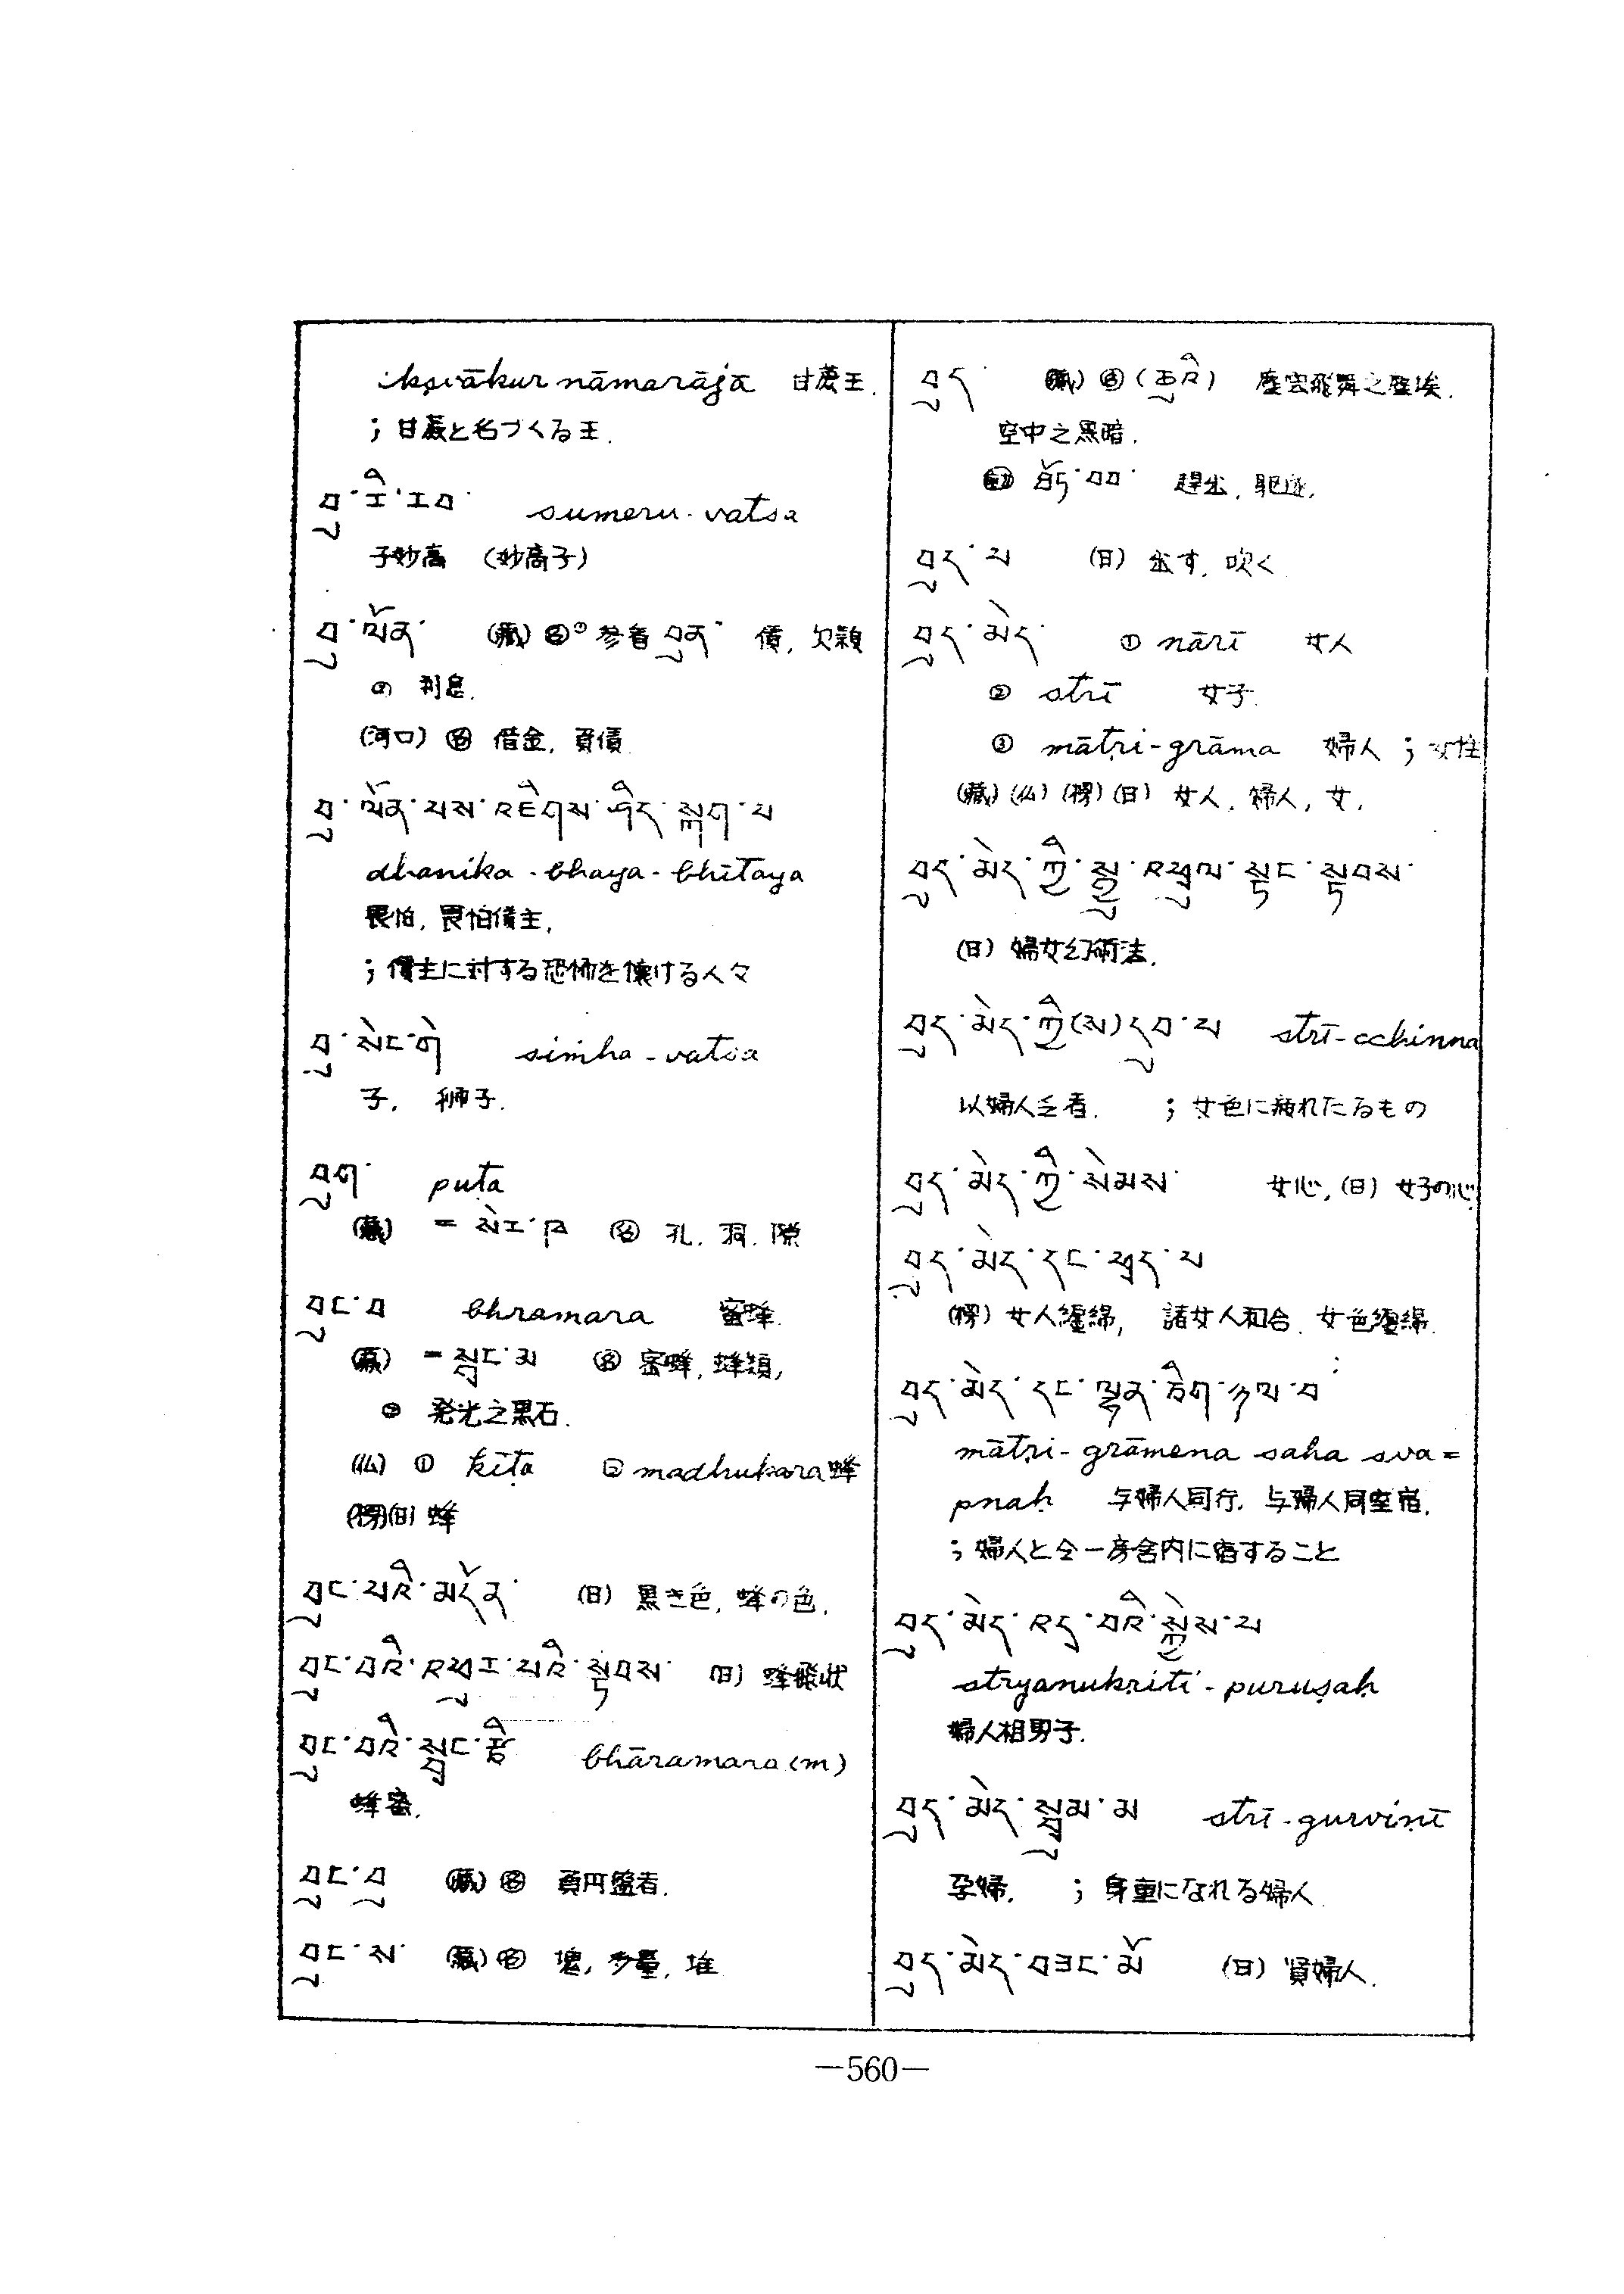 ikṣvākur nāmarājā 甘蔗王.
; 甘蔗と名づくる王.
བུ་རི་རབ་ sumeru-vatsa
子妙高 (妙高子)
བུ་ལོན་ (藏) 参看 བུན་ 債, 欠款
の 利息.
(河口) 名 借金, 負債
བུ་ལོན་པས་འཇིགས་ཤིང་སྐྲག་པ
dhanika-bhaya-bhītaya
畏怕, 畏怕債主,
; 債主に対する恐怖を懐ける人々
བུ་སེང་གེ siṁha-vatsa
子, 獅子.
བུག་ puṭa
(藏) = སེར་ཁ 名 孔, 洞, 隙
བུང་བ bhramara 蜜蜂.
(藏) = སྦྲང་མ 名 蜜蜂, 蜂類,
② 発光之黒石.
(仏) ① kīṭa ② madhukara 蜂
(楞)(日) 蜂
བུང་པའི་མདོན་ (日) 黒き色, 蜂の色.
བུང་བའི་འཕུར་པའི་སྟབས་ (日) 蜂飛状
བུང་བའི་སྦྲང་རྩི bhāramara(m)
蜂蜜.
བུང་བུ (藏) 名
བུང་ས་ (藏) 名 塊, 多量, 堆
བུད་ (藏) 名 塵雲飛舞之塵埃.
空中之黒暗.
བོད་བབ་ 趕出, 駆逐.
བུད་པ (日) 出す, 吹く
བུད་མེད་ ① nārī 女人
② strī 女子.
③ mātṛi-grāma 婦人 ; 女性
(藏)(仏)(楞)(日) 女人, 婦人, 女.
བུད་མེད་ཀྱི་སྒྱུ་འཕྲུལ་སྟང་སྟབས་
(日) 婦女幻術法.
བུད་མེད་ཀྱི(ས)དབུ་པ strī-cchinna
以婦人乏者. ; 女色に疲れたるもの
བུད་མེད་ཀྱི་སེམས་ 女心, (日) 女子の心
བུད་མེད་དང་ཕྲད་པ
(楞) 女人纏綿, 諸女人和合. 女色纏綿.
བུད་མེད་དང་ལྷན་ཅིག་ཉལ་བ
mātṛi-grāmena saha sva=
pnaḥ 与婦人同行. 与婦人同室宿.
; 婦人と仝一房舎内に宿すること
བུད་མེད་འདྲ་བའི་སྐྱེས་པ
stryanukṛiti-puruṣaḥ
婦人相男子.
བུད་མེད་སྦྲུམ་མ strī-gurviṇī
孕婦. ; 身重になれる婦人
བུད་མེད་བཟང་མོ (日) 賢婦人.
—560—